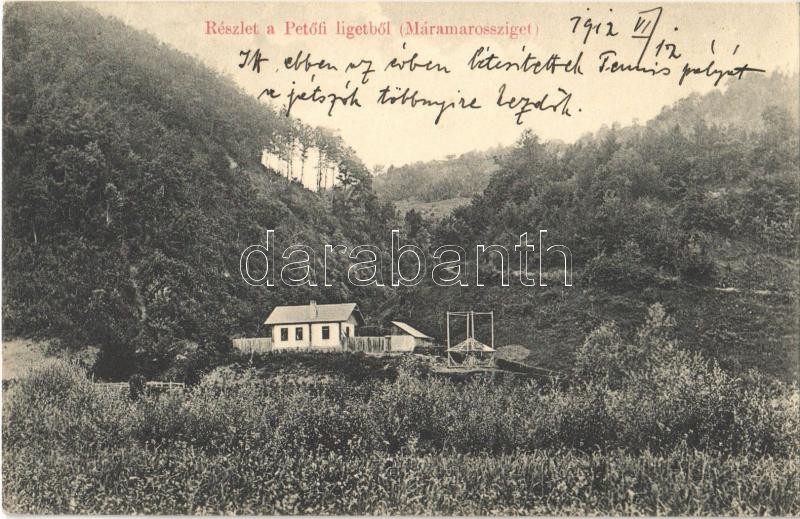 Részlet a Petőfi ligetből (Máramarossziget)
1912 VI/12
Itt ebben az évben létesitettek Tennis pályát
a játszók többnyire kezdők.
darabanth